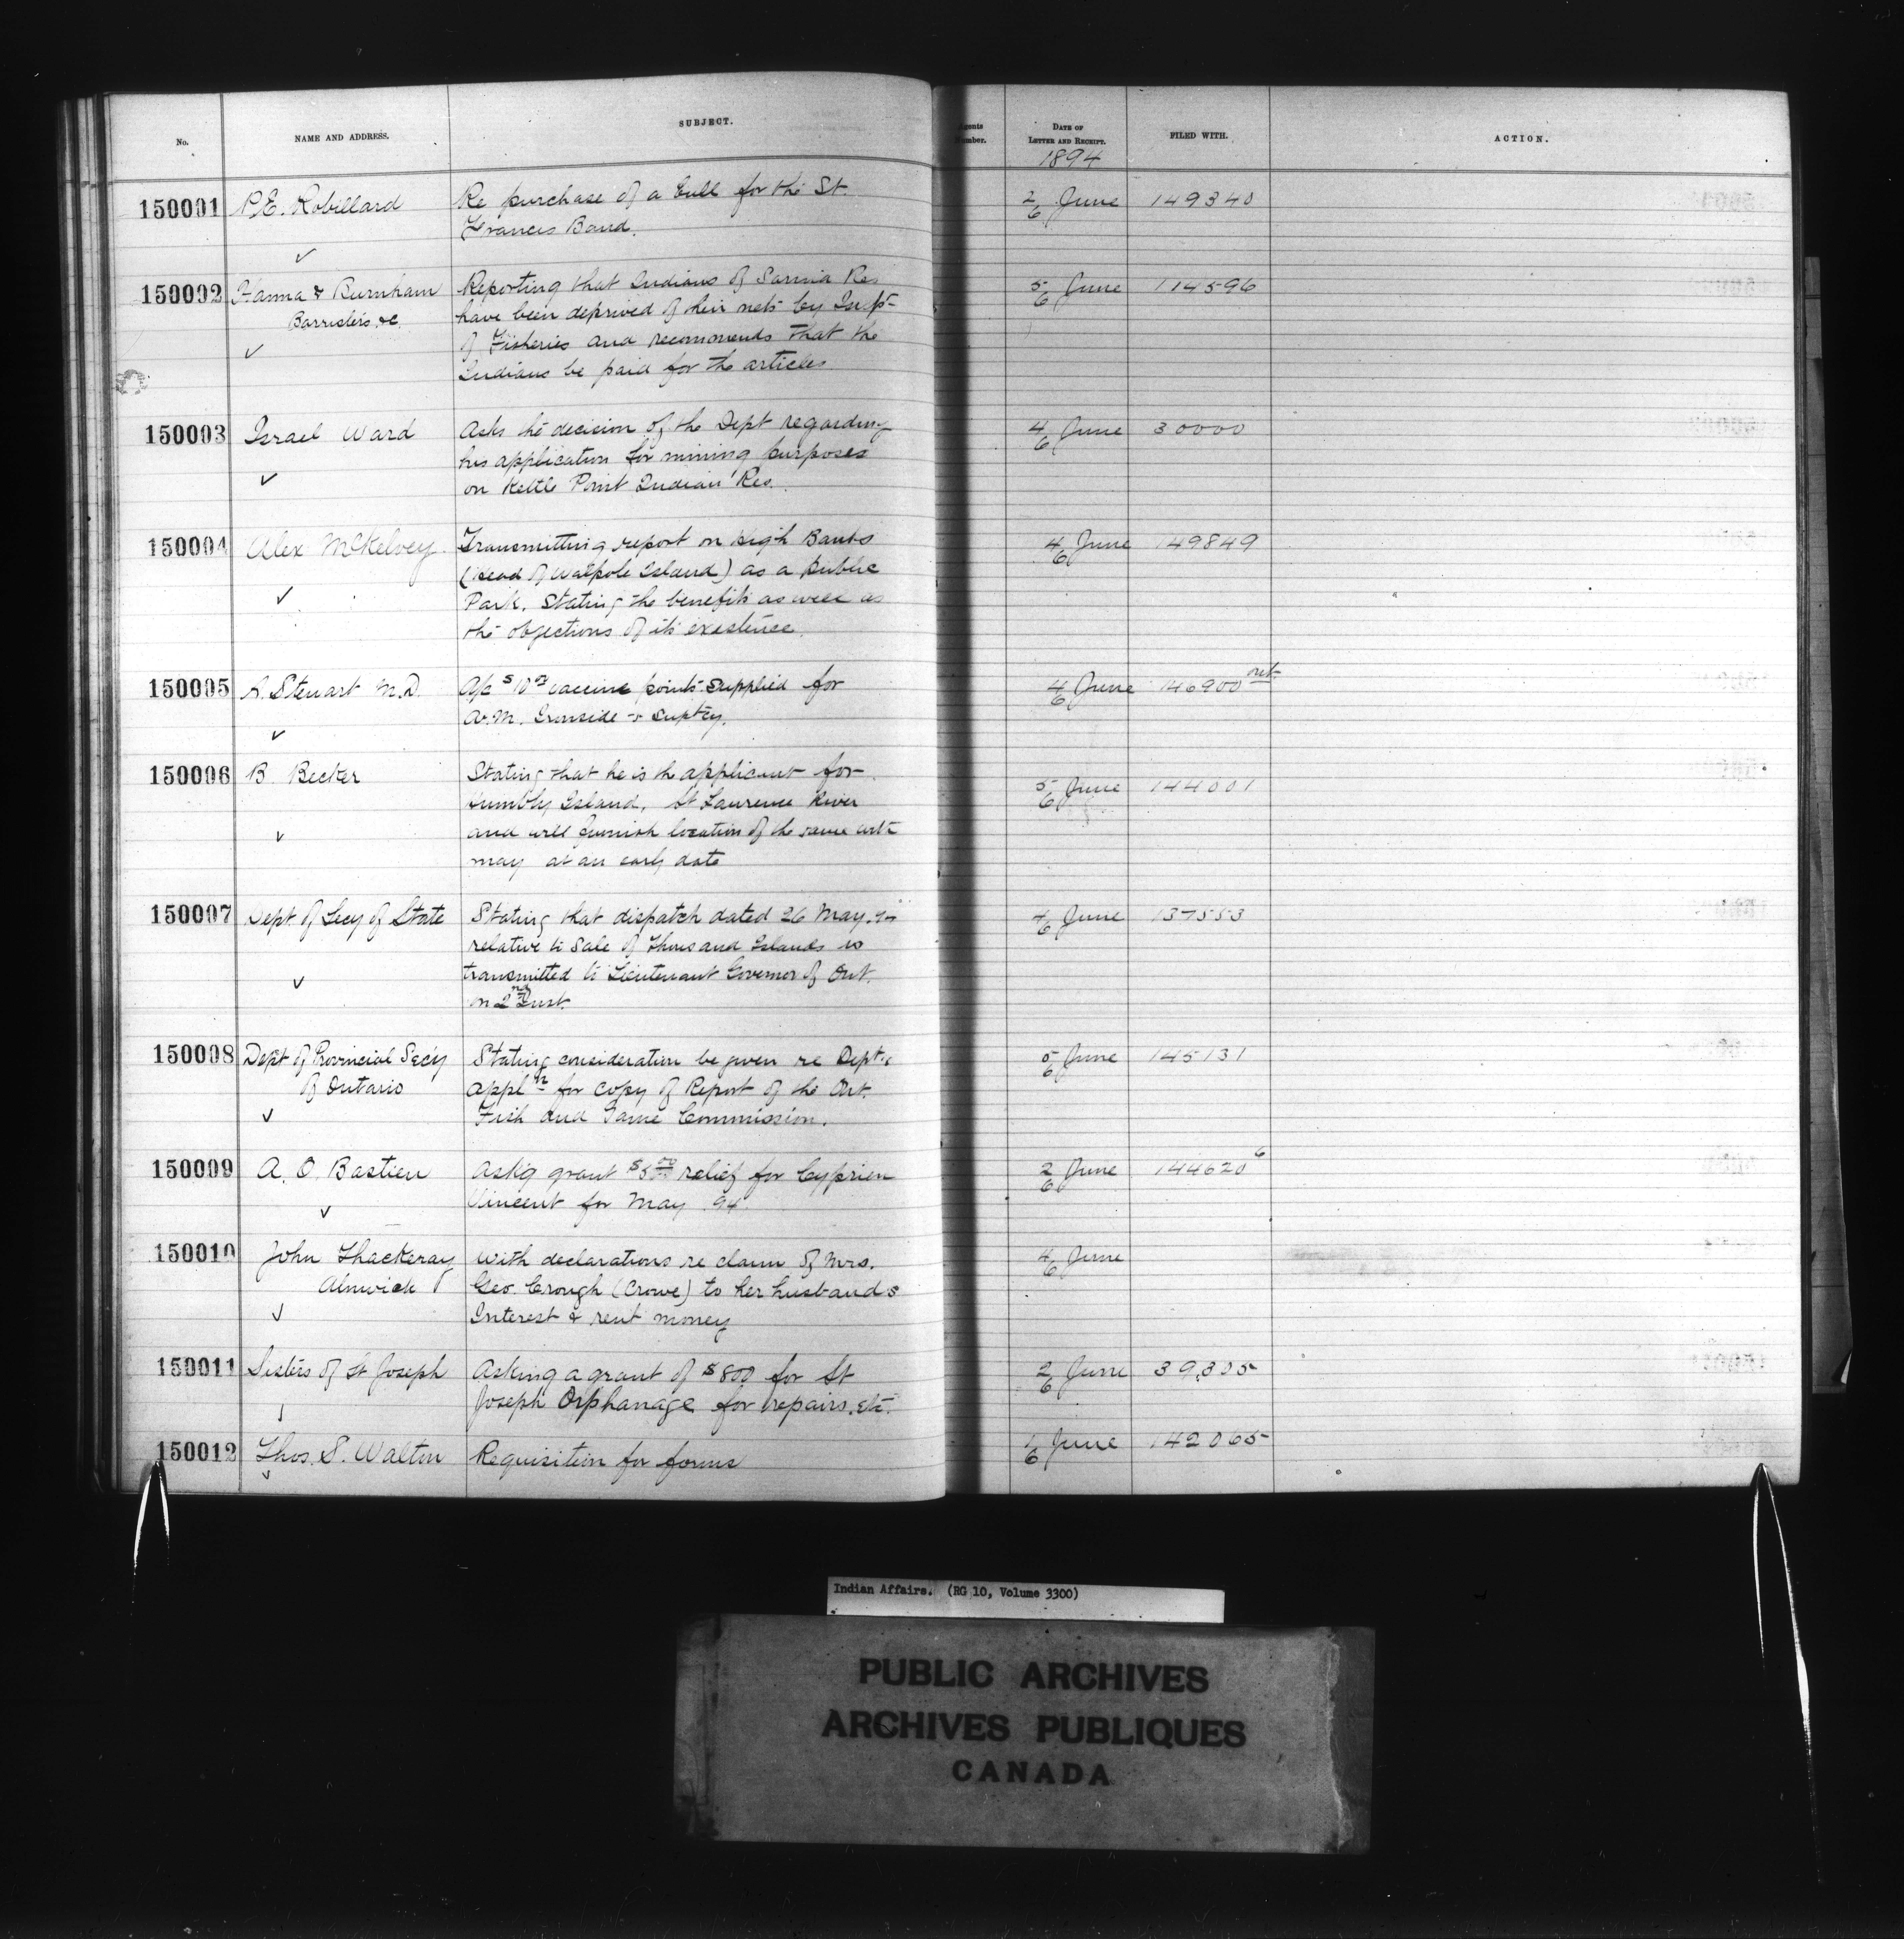 No.
NAME AND ADDRESS.
SUBJECT.
Agents Number.
DATE OF LETTER AND RECEIPT.
FILED WITH.
ACTION.
1894
150001 P.E. Robillard Re purchase of a bull for the St. 2/6 June 149340
Francis Band.
150002 Hanna & Burnham Reporting that Indians of Sarnia Res 5/6 June 114596
Barristers &c. have been deprived of their nets by Insp
of Fisheries and recommends that the
Indians be paid for the articles
150003 Israel Ward Asks the decision of the Dept regarding 4/6 June 30000
his application for mining purposes
on Kettle Point Indian Res.
150004 Alex McKelvey Transmitting report on High Banks 4/6 June 149849
(Head of Walpole Island) as a Public
Park. Stating the benefits as well as
the objections of its existence.
150005 A. Stewart M.D. A/c $10 vaccine points supplied for 4/6 June 146900
A.M. Ironside & Suptcy.
150006 B. Becker Stating that he is the applicant for 5/6 June 144001
Island, St Laurence River
and will furnish location of the same
may at an early date
150007 Dept of Secy of State Stating that dispatch dated 26 May. 4/6 June 137553
relative to Sale of Thousand Islands is
transmitted to Lieutenant Governor of Ont.
on 2nd Inst.
150008 Dept of Provincial Secy Stating consideration be given re Dept's 5/6 June 145131
of Ontario appln for copy of Report of the Ont.
Fish and Game Commission.
150009 A. O. Bastien Ask'g grant $5 00 relief for Cyprien 2/6 June 144620 6
Vincent for May 94
150010 John Thackeray With declarations re claim of Mrs. 4/6 June
Alnwick Geo. Crough (Crowe) to her husbands
Interest & rent money
150011 Sisters of St Joseph Asking a grant of $800 for St 2/6 June 39,305
Joseph Orphanage for repairs, etc.
150012 Thos. S. Walton Requisition for forms 1/6 June 142065
Indian Affairs. (RG 10, Volume 3300)
PUBLIC ARCHIVES
ARCHIVES PUBLIQUES
CANADA